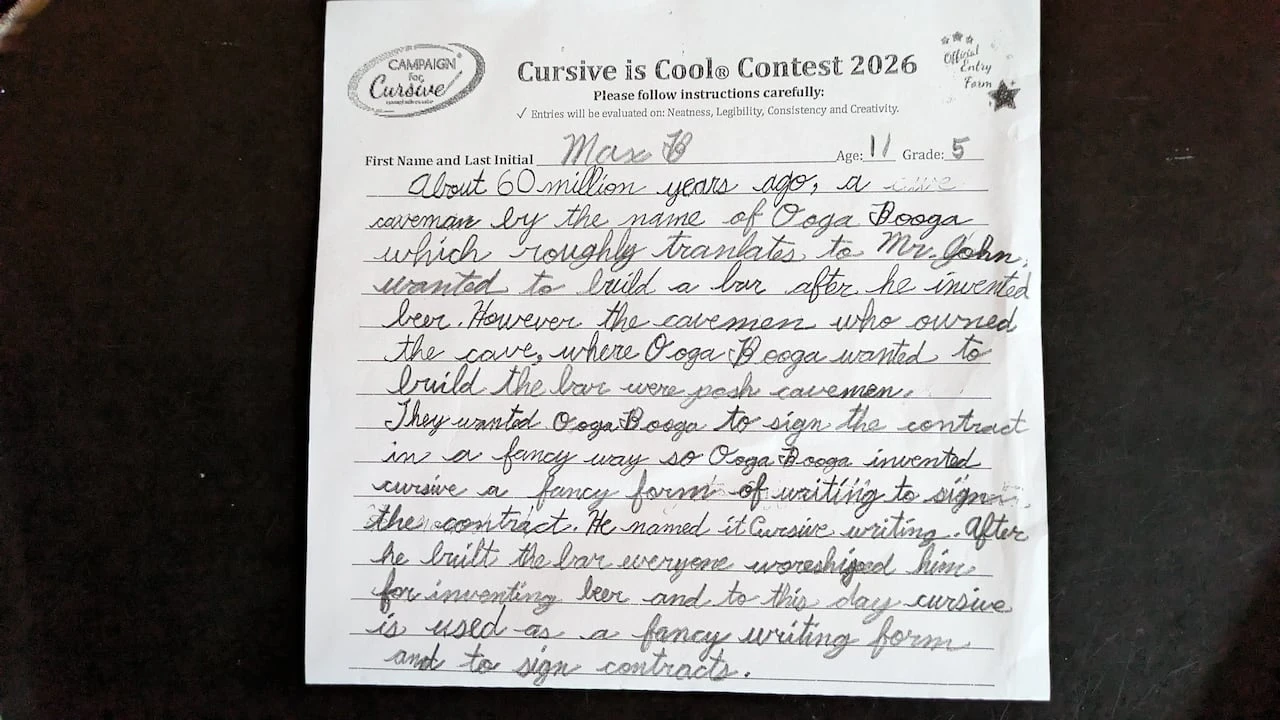 CAMPAIGN
for
Cursive
Cursive is Cool® Contest 2026
Official
Entry
Form
Please follow instructions carefully:
✓ Entries will be evaluated on: Neatness, Legibility, Consistency and Creativity.
First Name and Last Initial Max B Age: 11 Grade: 5
About 60 million years ago, a
caveman by the name of Ooga Booga
which roughly tranlates to Mr. John,
wanted to build a bar after he invented
beer. However the cavemen who owned
the cave, where Ooga Booga wanted to
build the bar were posh cavemen.
They wanted Ooga Booga to sign the contract
in a fancy way so Ooga Booga invented
cursive a fancy form of writing to sign
the contract. He named it Cursive writing. After
he built the bar everyone woreshiped him
for inventing beer and to this day cursive
is used as a fancy writing form
and to sign contracts.